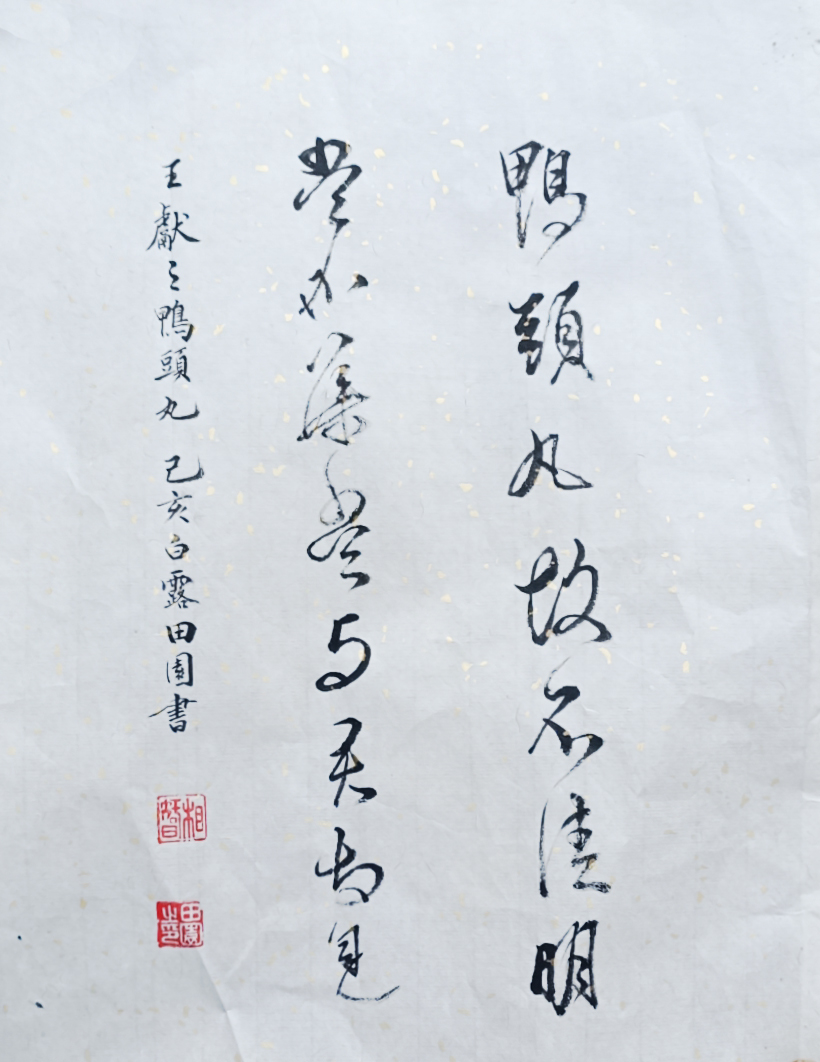 鴨頭丸故不佳明
當必集當與君相見
王獻之鴨頭丸 己亥白露田園書
田園之印